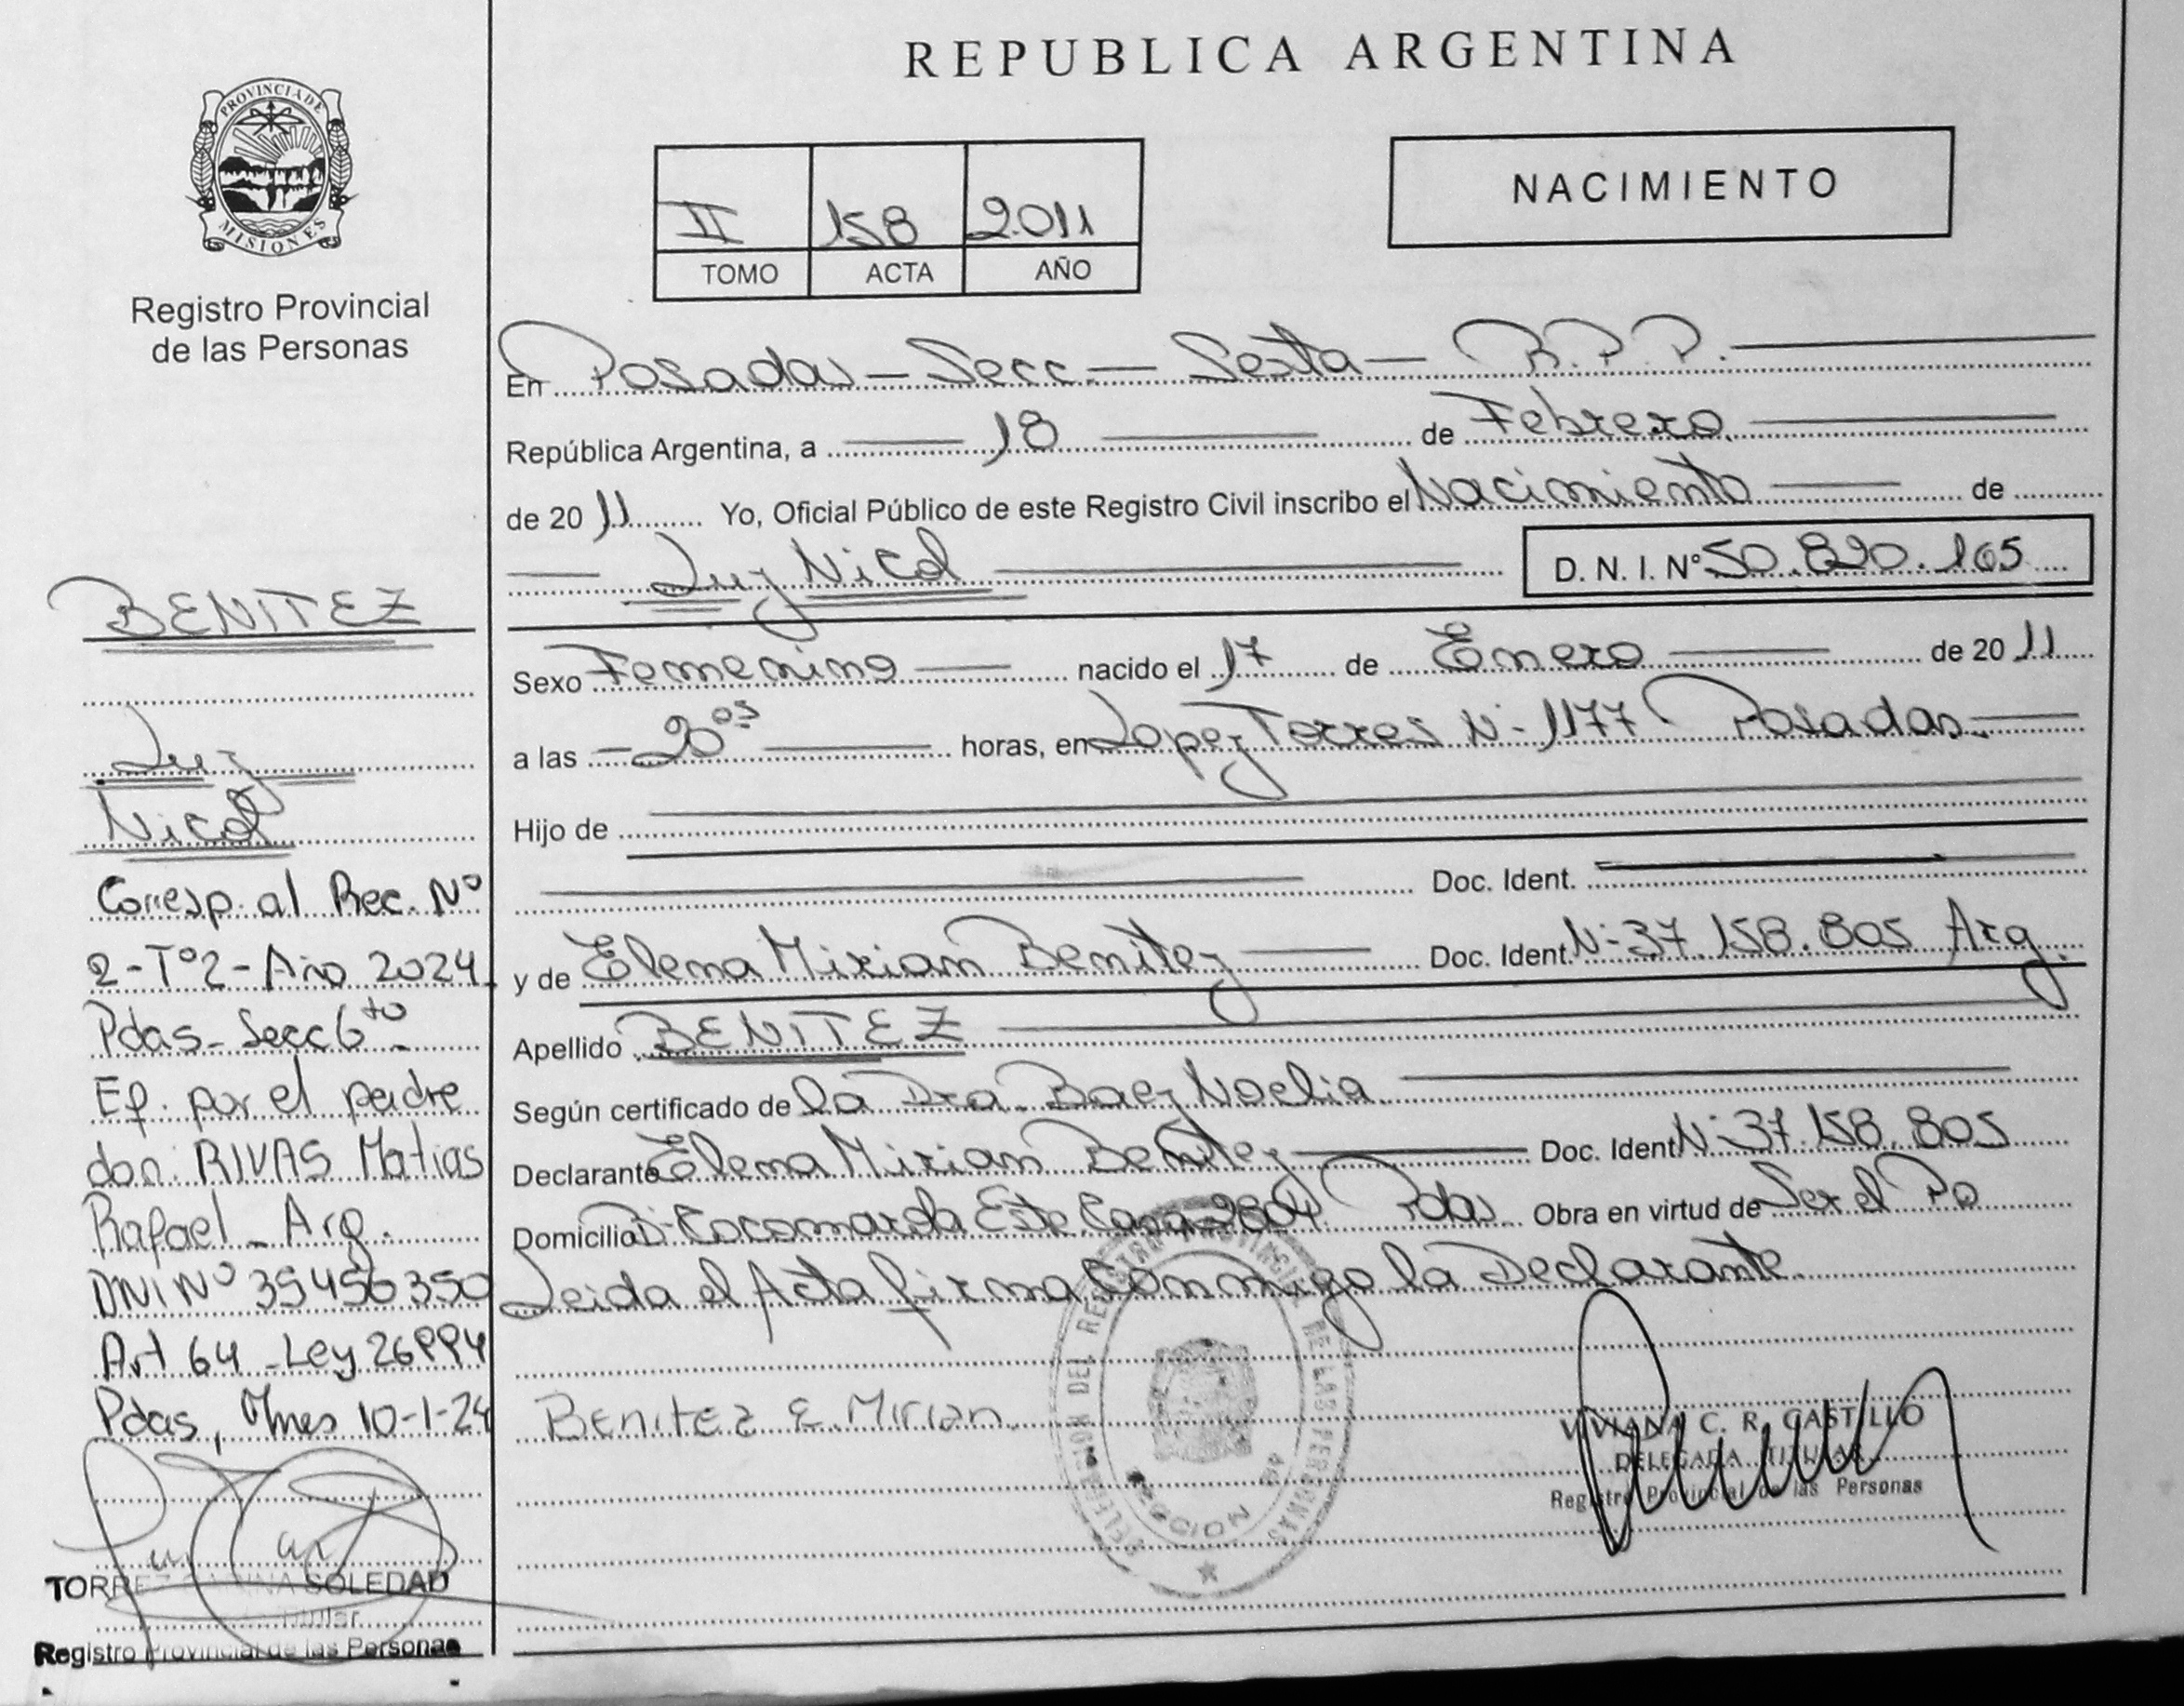 REPUBLICA ARGENTINA
PROVINCIA DE
MISIONES
Registro Provincial
de las Personas
II 158 2.011
TOMO ACTA AÑO
NACIMIENTO
En Posadas - Secc. - Sexta - R.P.P.
República Argentina, a 18 de Febrero
de 2011 Yo, Oficial Público de este Registro Civil inscribo el Nacimiento de
Luz Nicol D. N. I. N° 50.820.165
Sexo Femenino nacido el 17 de Enero de 2011
a las 20⁰⁵ horas, en Lopez Torres N- 1177 Posadas.
Hijo de
Doc. Ident.
y de Elena Mirian Benitez Doc. Ident. N- 37.158.805 Arg.
Apellido BENITEZ
Según certificado de la Dra. Baez Noelia
Declarante Elena Mirian Benitez Doc. Ident. N- 37.158.805
Domicilio B- Cocomarola Este Casa 2604 Pdas Obra en virtud de Ser el Po
Leida el Acta firma conmigo la Declarante.
Benitez E. Mirian
VIVIANA C. R. CASTILLO
DELEGADA TITULAR
Registro Provincial de las Personas
BENITEZ
Luz
Nicol
Corresp. al Rec. N°
2 - T°2 - Año 2024
Pdas - Secc 6to -
Ef. por el padre
don: RIVAS Matias
Rafael - Arg.
DNI N° 35456350
Art 64 - Ley 26994
Pdas, Mnes 10-1-24
SOLEDAD
Titular
Registro Provincial de las Personas